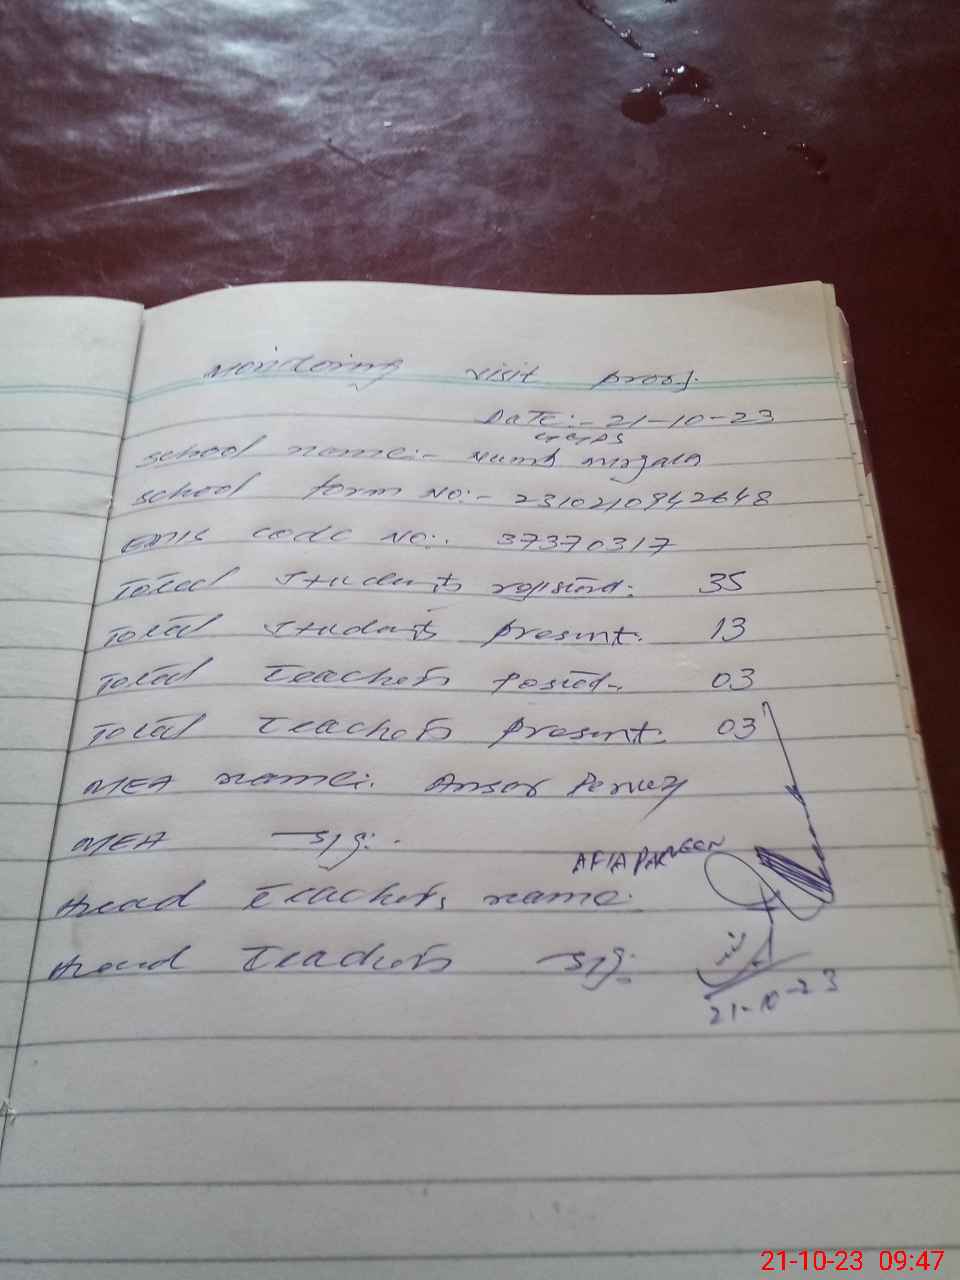 Monitoring visit proof.
Date:- 21-10-23
GGPS
school name:- Numb mrgala
school form No:- 2310210942648
EMIS code No:. 37370317
Total students rejistered: 35
Total students present: 13
Total Teachers Posted- 03
Total Teachers present: 03
MEA name:. Ansar Pervez
MEA sig:.
AFIA PARVEEN
Head Teachers name:
Head Teachers sig:
21-10-23
21-10-23 09:47